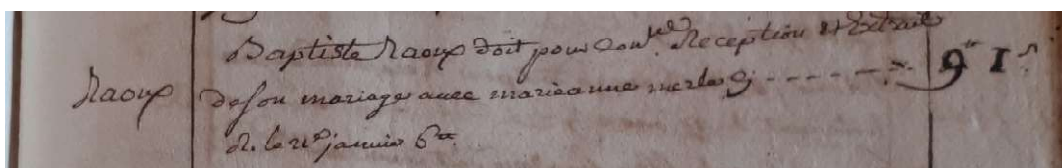 Baptiste Raoux doit pour con.lle Reception et Extrait
Raoux
de son mariage avec marieanne merle cy - - - - - - 9tt 1s
R. le 21e janvier 6tt